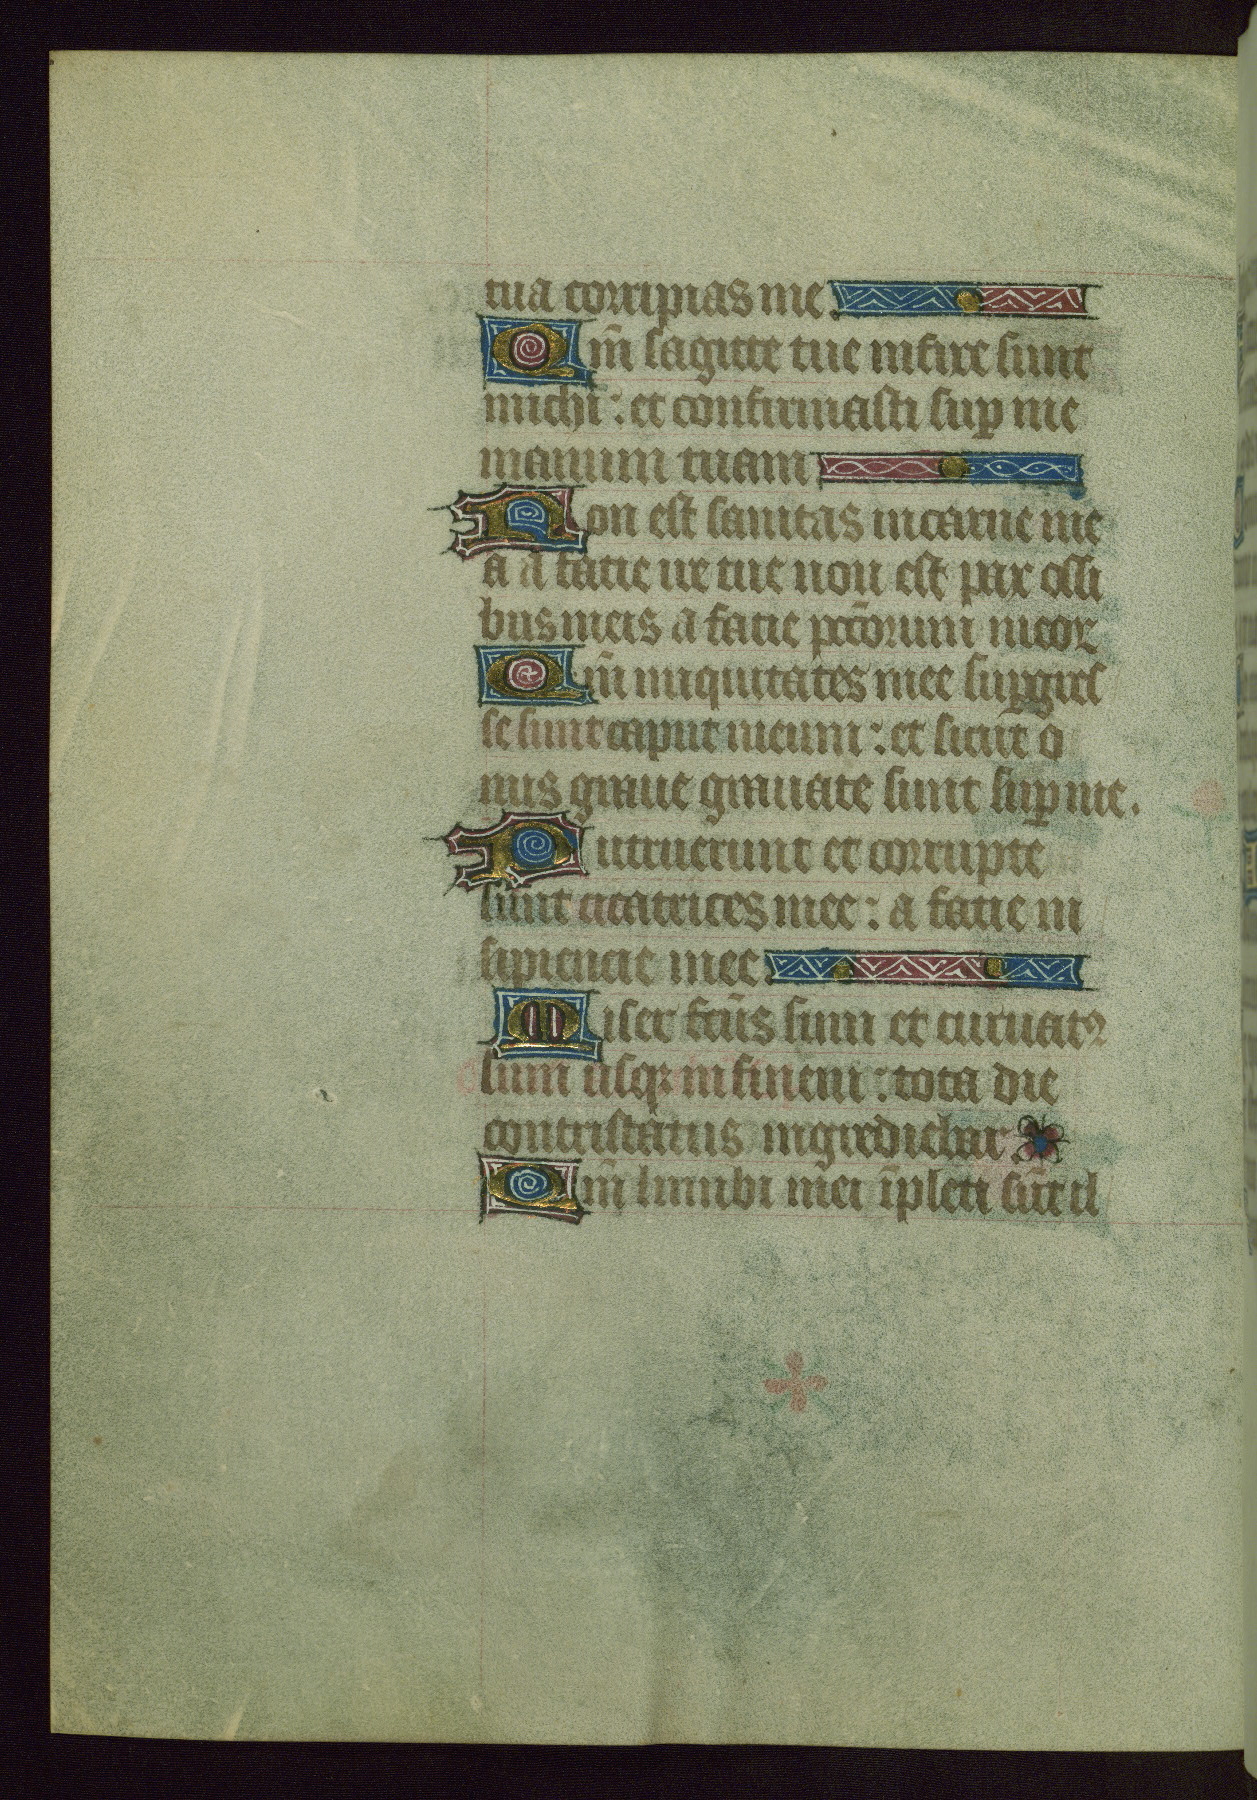 tua corripias me
Qm̄ sagitte tue infixe sunt
michi : et confirmasti sup̱ me
manum tuam
Non est sanitas in carne me
a a facie ire tue non est pax ossi
bus meis a facie pcc̄orum meoꝝ
Qm̄ iniquitates mee sup̱gres
se sunt caput meum : et sicut o
nus graue grauate sunt sup̱ me.
Putruerunt et corrupte
sunt cicatrices mee : a facie in
sipiencie mee.
Miser fcūs sum et curuatꝰ
sum usqꝫ in finem : tota die
contristatus ingrediebar.
Qm̄ lumbi mei īpleti sūt il